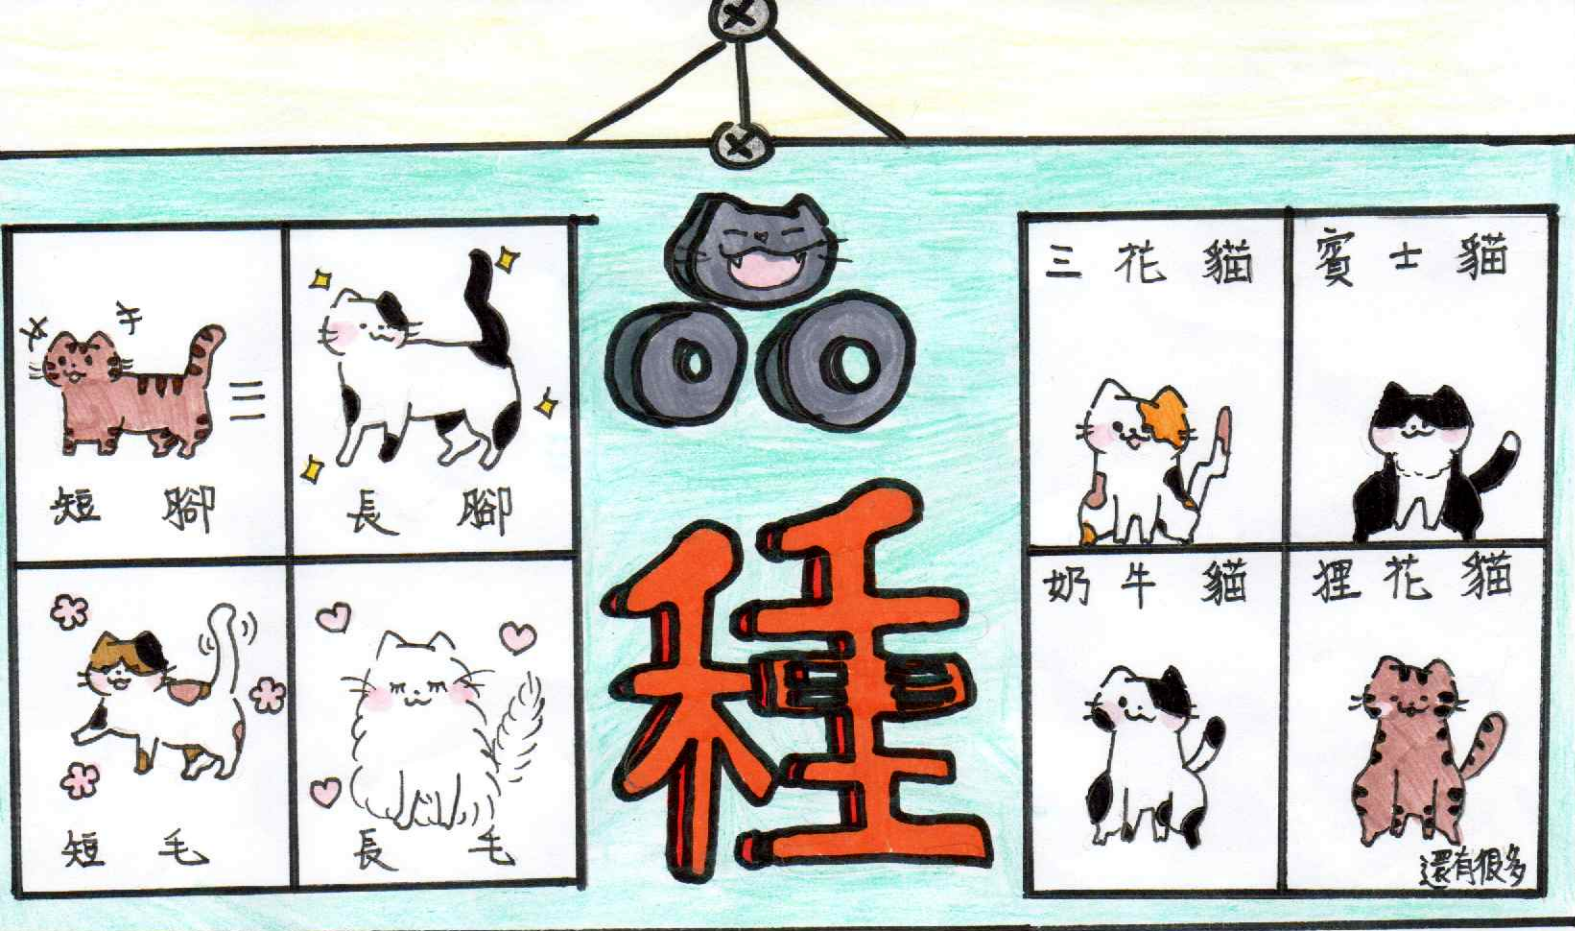 品種
短腳
長腳
短毛
長毛
三花貓
賓士貓
奶牛貓
狸花貓
還有很多